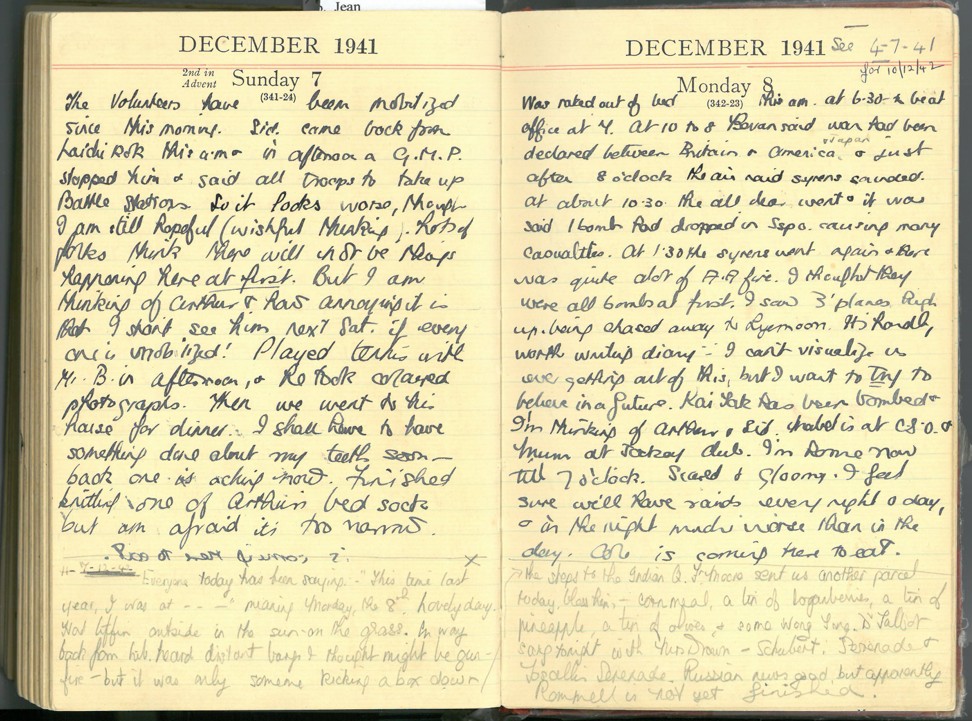 Jean
DECEMBER 1941
2nd in
Advent
Sunday 7
(341-24)
The Volunteers have been mobilized
since this morning. Sid. came back from
Laichi Kok this a.m. & in afternoon a G.M.P.
stopped him & said all troops to take up
Battle Stations. So it looks worse, though
I am still hopeful (wishful thinking). Lots of
folks think there will not be things
happening here at first. But I am
thinking of Arthur & how annoying it is
that I shan't see him next Sat. if every
one is mobilized! Played tennis with
Mr. B. in afternoon, & he took coloured
photographs. Then we went to his
house for dinner. I shall have to have
something done about my teeth soon –
back one is aching now. Finished
knitting one of Arthur's bed socks
but am afraid it's too narrow.
X
Everyone today has been saying:- "This time last
year, I was at - - -" meaning Monday, the 8th. Lovely day.
Had tiffin outside in the sun - on the grass. On way
back from lab. heard distant bangs & thought might be gun-
fire - but it was only someone kicking a box down
DECEMBER 1941
See 4-7-41
for 10/12/42
Monday 8
(342-23)
Was raked out of bed this am. at 6.30 to be at
office at 7. At 10 to 8 Bevan said war had been
declared between Britain & America, & Japan & just
after 8 o'clock the air raid syrens sounded.
At about 10.30 the all clear went & it was
said 1 bomb had dropped on Sspo. causing many
casualties. At 1.30 the syrens went again & there
was quite a lot of A.A fire. I thought they
were all bombs at first. I saw 3 'planes high
up being chased away to Lyemoon. It's hardly
worth writing diary - I can't visualize us
ever getting out of this, but I want to try to
believe in a future. Kai Tak has been bombed &
I'm thinking of Arthur & Sid. Mabel is at C.S.O. &
Mum at Jockey Club. I'm home now
till 7 o'clock. Scared & gloomy. I feel
sure we'll have raids every night & day,
& in the night much worse than in the
day. is coming here to eat.
the steps to the Indian Q. Y. Moore sent us another parcel
today, bless him, - cornmeal, a tin of loganberries, a tin of
pineapple, a tin of olives, & some Wong Tong. D. Talbot
sang tonight with Mrs. Drown - Schubert's Serenade &
Toselli's Serenade. Russian news good, but apparently
Rommell is not yet finished.